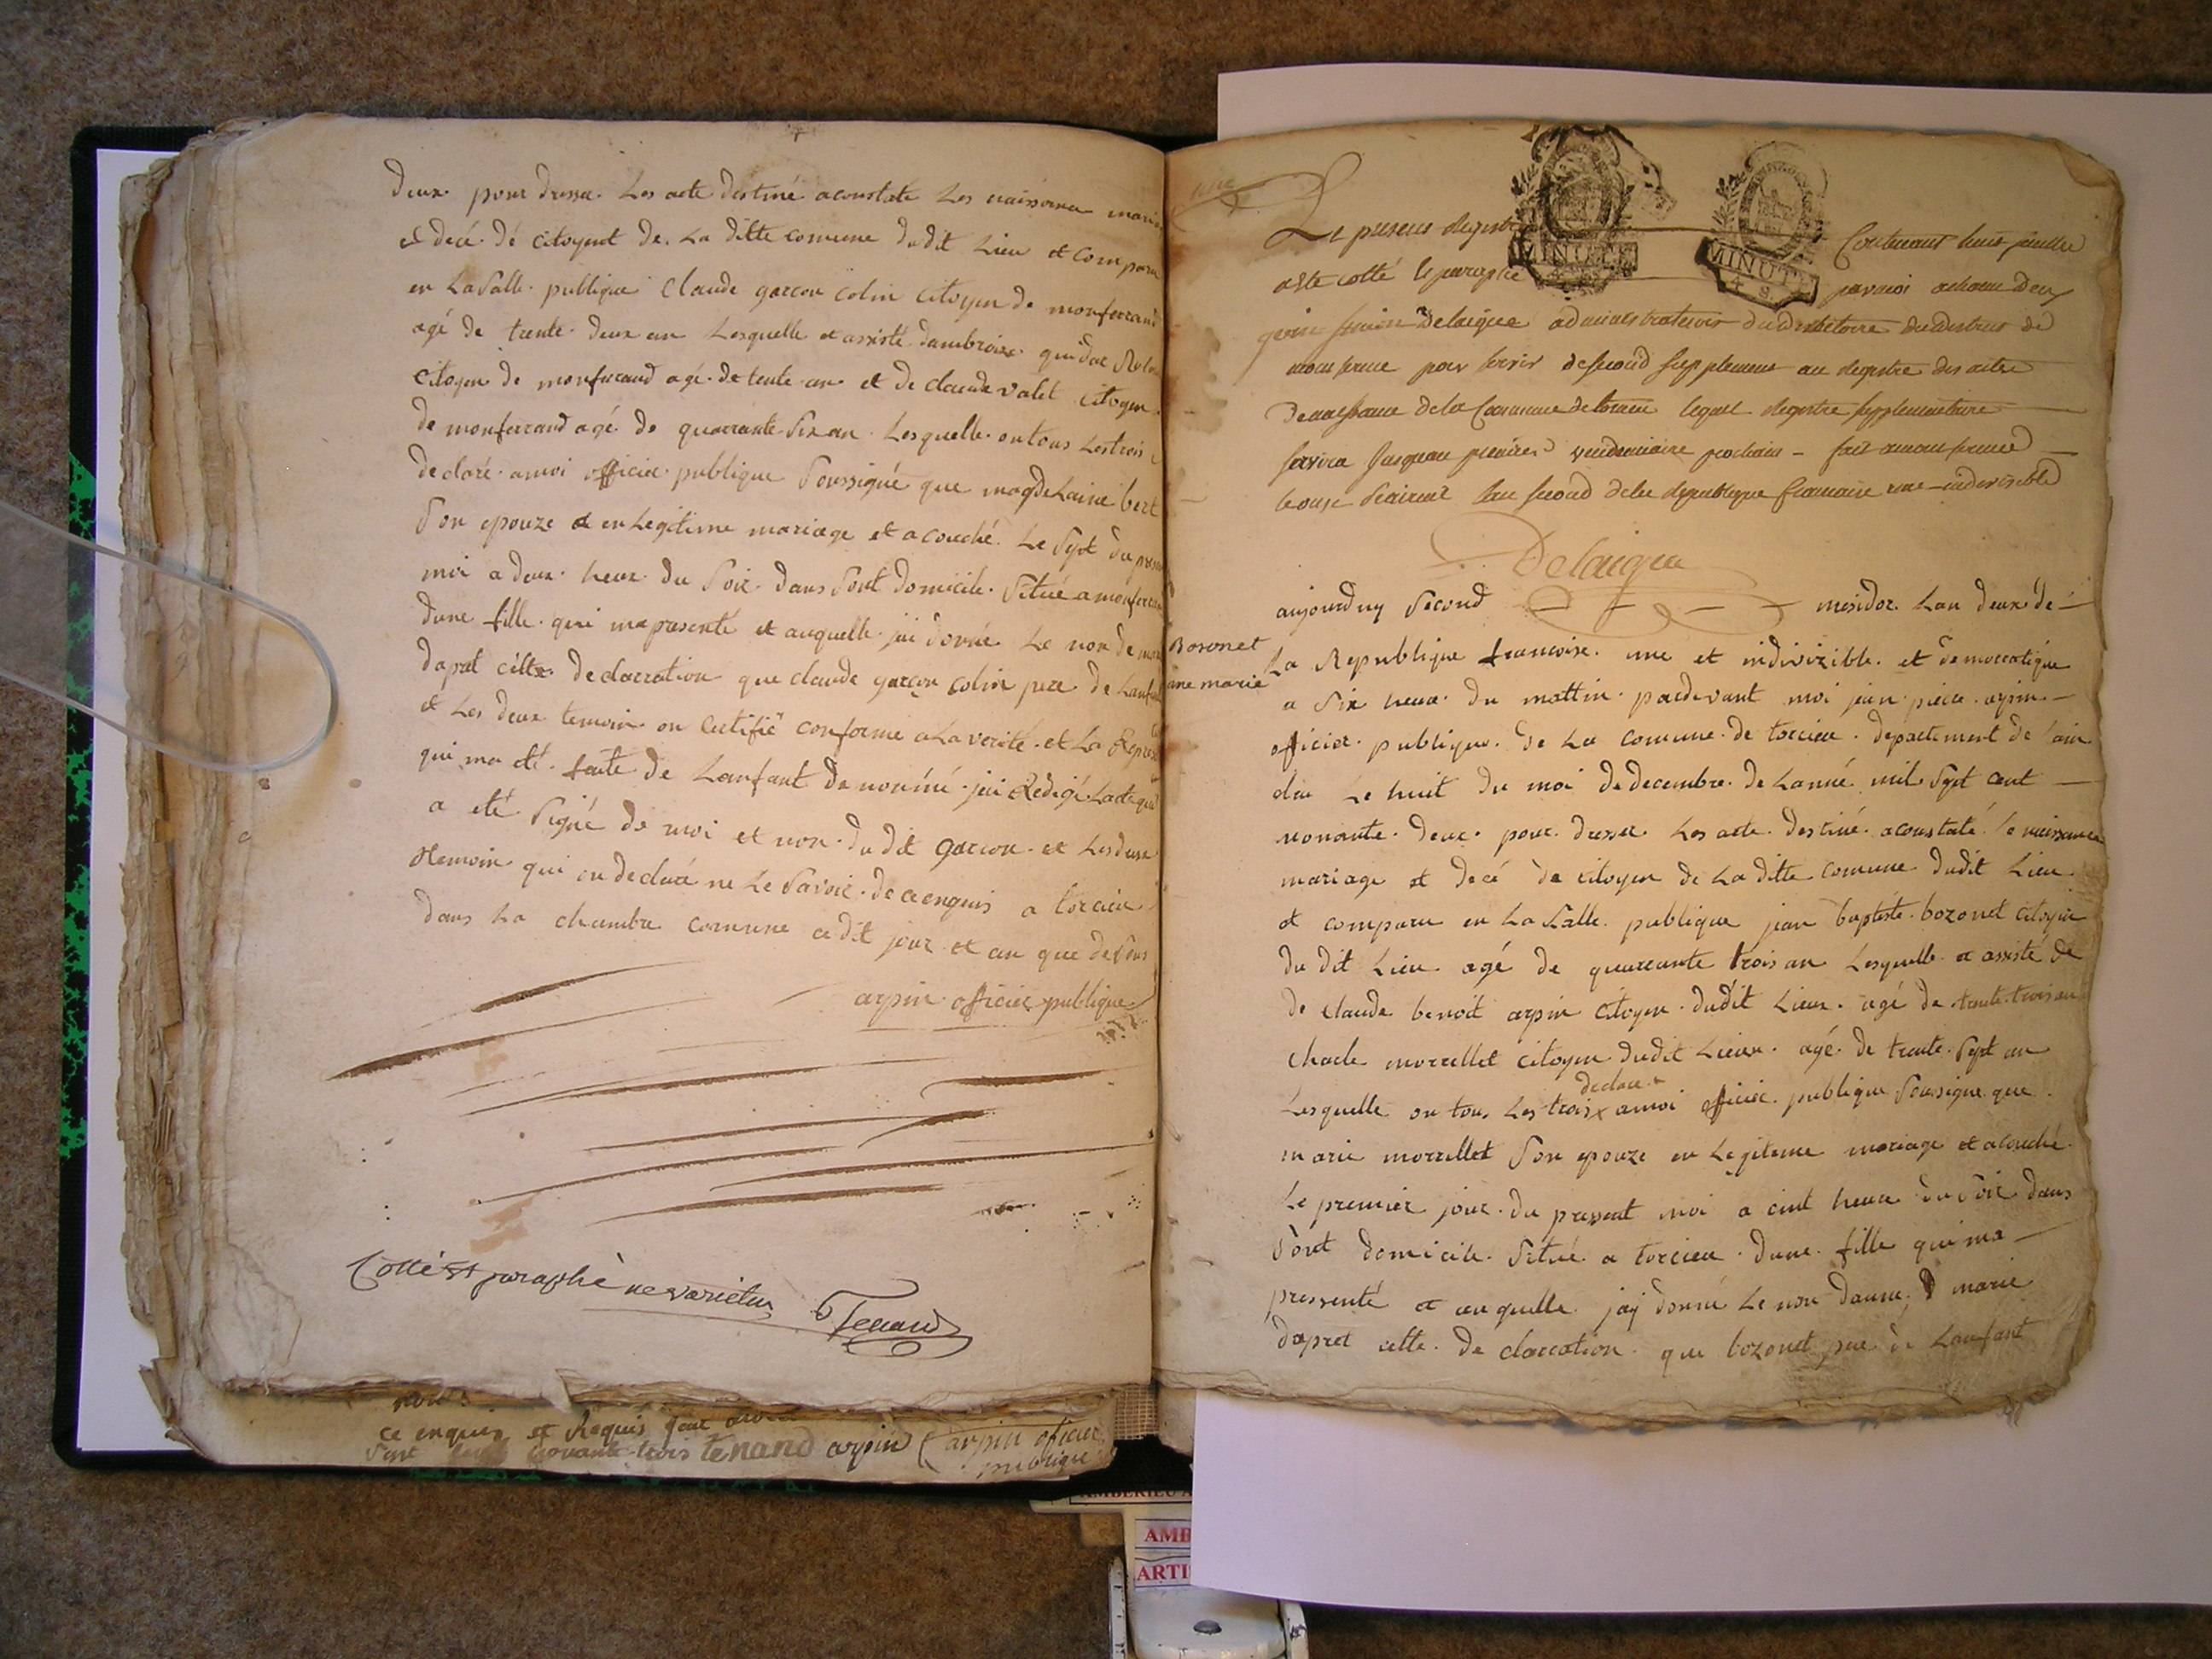 deux pour dresse Les acte destiné aconstate Les naissance
et decé dé citoyent de La ditte comune dudit Lieu et
en La Salle publique Claude garcon colin citoyen de monferrand
agé de trente deux an Lesquelle et assisté dambroise
citoyen de monferrand agé de tente an et de claude valet citoyen
de monferrand agé de quarrante Six an Lesquelle on tous Les trois
declaré amoi officier publique Soussigné que magdelaine bert
Son epouze en Legitime mariage et acouché Le Sept du
moi a deux heux du Soir dans Sont domicile Situé a
dune fille qui ma presenté et auquelle jai donné Le non de
daprat cette declarration que claude garcon colin pere de
et Les deux temoin on Certifié conforme a La verité et La
qui ma eté faite de Lanfant denommé jai Redigé Lacte qui
a eté Signé de moi et non du dit garcon et Les deux
temoin qui on declaré ne Le Savoir de ce enquis a torcieu
dans La chambre comune cedit jour et an que desus
arpin officier publique
Cotté et paraphé ne varietur Tenand
ce enquis et Requis
nonante trois tenand arpin arpin oficier
publique
Le present Registre Contenant huit feuillet
a été cotté et paraphé par moi
Delaigue administrateur du directoire du district de
pour servir de second supplement au Registre des actes
de naissance de la Commune de torcieu lequel Registre supplementaire
servira jusquau premier vendemiaire prochain
Lan second de la Republique francaise une indivisible
MINUTE
MINUTE
Delaigue
aujourduy Second mesidor Lan deux de
Bosonet
ane marie
La Republique francoise une et indivizible et democratique
a Six heux du mattin pardevant moi jean piere arpin
officier publique de La comune de torcieu departement de lain
elu Le huit du moi de decembre de Lanné mil Sept cent
nonante deux pour dresser Les acte destiné aconstaté Le naissance
mariage et decé de citoyen de La ditte comune dudit Lieu
et comparu en La Salle publique jean baptiste bozonet citoyin
du dit Lieu agé de quarrante trois an Lesquelle et assisté de
de claude benoit arpin citoyen dudit Lieux agé de trente trois an
Charle morrellet citoyen dudit Lieux agé de trente Sept an
declare
Lesquelle on tous Les trois x amoi officier publique Soussigné que
marie morrellet Son epouze en Legiteme mariage et acouché
Le premier jour du pressent moi a cint heux du Soir dans
Sont domicile Situé a torcieu dune fille qui ma
pressenté et auquelle jaÿ donné Le non danne marie
dapret cette declarration que bozonet pere de Lanfant
AMBERIEU
AMB
ARTI